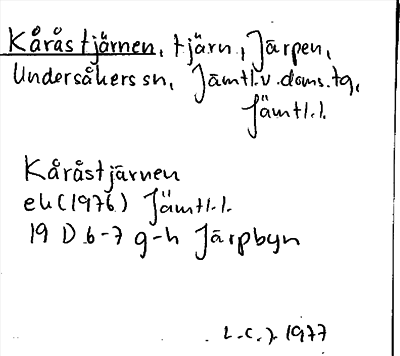 Kåråstjärnen, tjärn, Järpen,
Undersåkers sn, Jämtl.v.doms.tg,
Jämtl.l.
Kåråstjärnen
ek (1976) Jämtl.l.
19 D 6-7 g-h Järpbyn
L.C.J. 1977